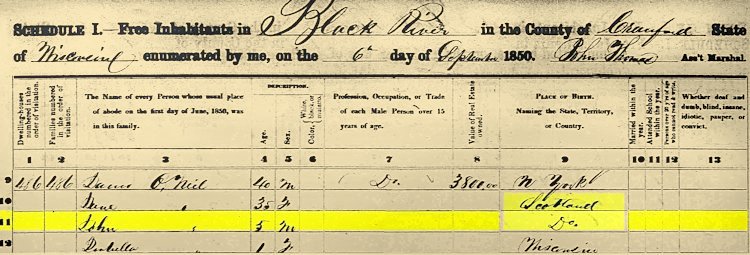 SCHEDULE I.—Free Inhabitants in Black River in the County of Crawford State
of Wisconsin enumerated by me, on the 6th day of September 1850. John Thomas Ass't Marshal.
Dwelling-houses numbered in the order of visitation.
Families numbered in the order of visitation.
The Name of every Person whose usual place of abode on the first day of June, 1850, was in this family.
DESCRIPTION.
Age.
Sex.
Color, White, black, or mulatto.
Profession, Occupation, or Trade of each Male Person over 15 years of age.
Value of Real Estate owned.
PLACE OF BIRTH. Naming the State, Territory, or Country.
Married within the year.
Attended School within the year.
Persons over 20 y'rs of age who cannot read & write.
Whether deaf and dumb, blind, insane, idiotic, pauper, or convict.
1 2 3 4 5 6 7 8 9 10 11 12 13
9 486 486 O'Neil 40 M Do. 3800,00 N York
10 35 F Scotland
11 John " 5 M Do.
12 Isabella " 1 F Wisconsin